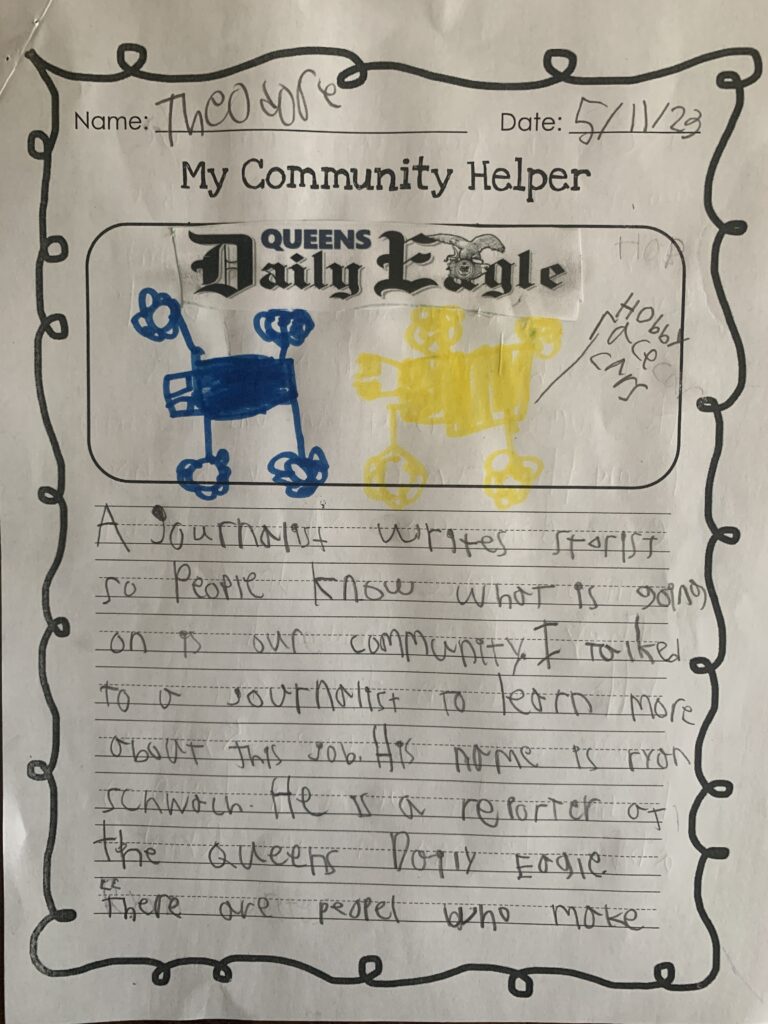 Name: Theodore Date: 5/11/23
My Community Helper
QUEENS
Daily Eagle
Hobby
race
cars
A Journalist writes storist
so People know what is going
on is our community. I talked
to a Journalist to learn more
about this Job. His name is ryan
schwach. He is a reporter at
the Queens Daily Eagle
"There are peopel who make